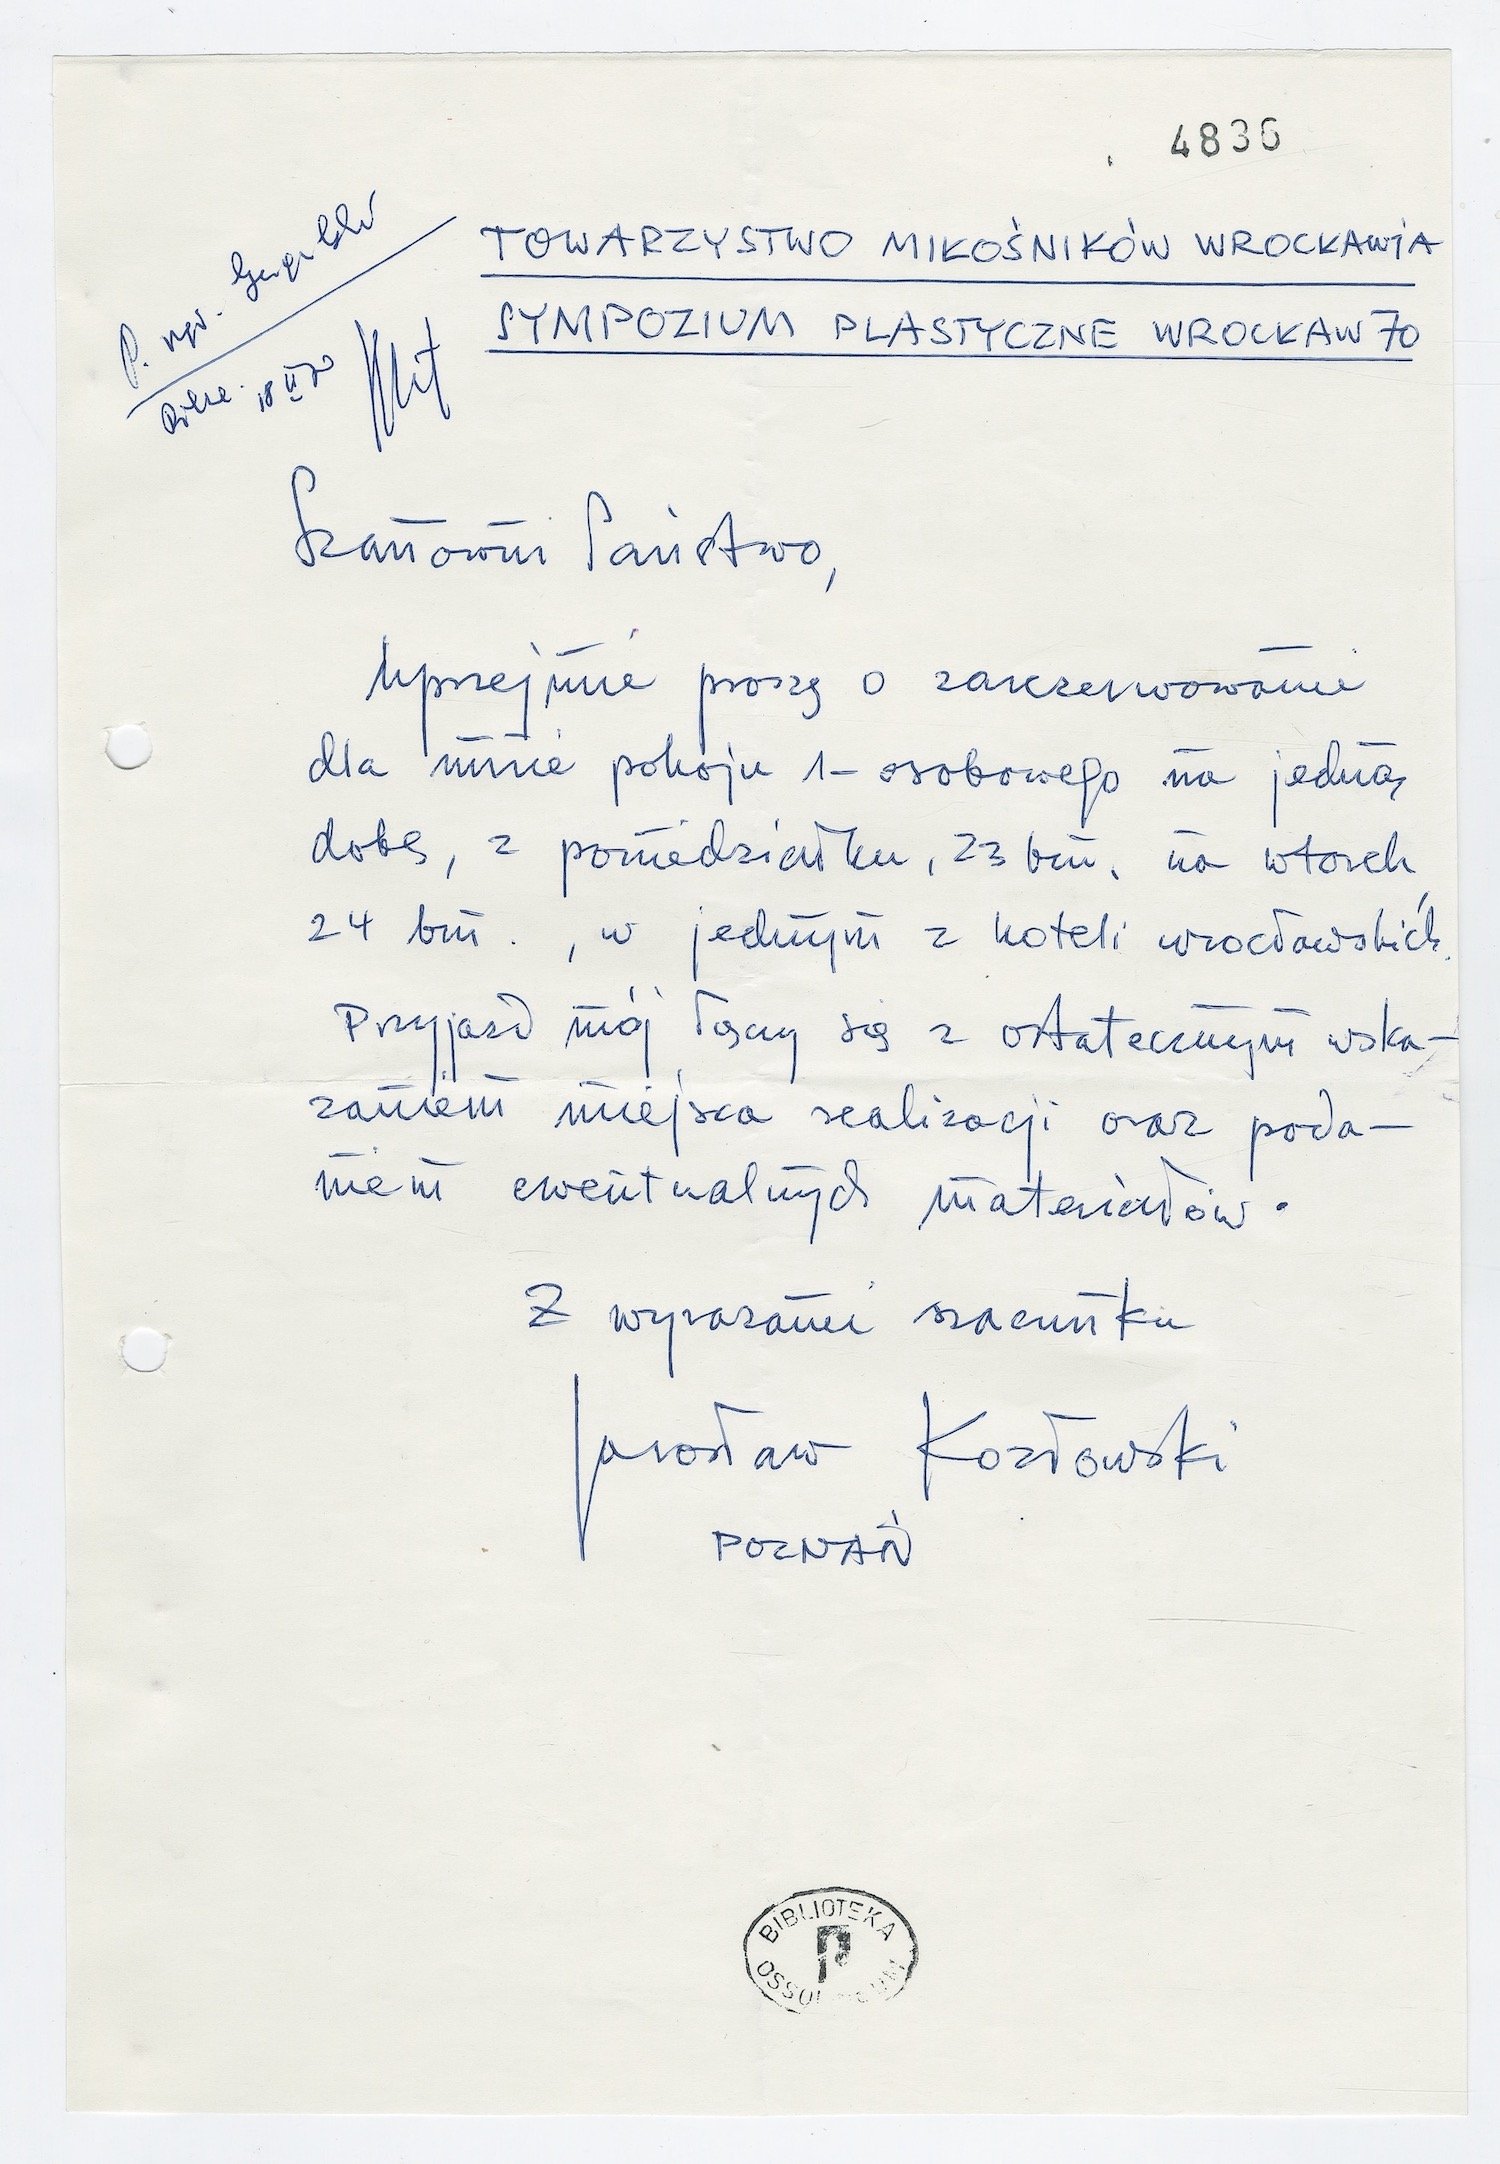 4836
P. mgr.
18 II 70
TOWARZYSTWO MIŁOŚNIKÓW WROCŁAWIA
SYMPOZIUM PLASTYCZNE WROCŁAW 70
Szanowni Państwo,
Uprzejmie proszę o zarezerwowanie
dla mnie pokoju 1-osobowego na jedną
dobę, z poniedziałku, 23 bm. na wtorek
24 bm., w jednym z hoteli wrocławskich.
Przyjazd mój łączy się z ostatecznym wska-
zaniem miejsca realizacji oraz poda-
niem ewentualnych materiałów.
Z wyrazami szacunku
Jarosław Kozłowski
POZNAŃ
BIBLIOTEKA
P